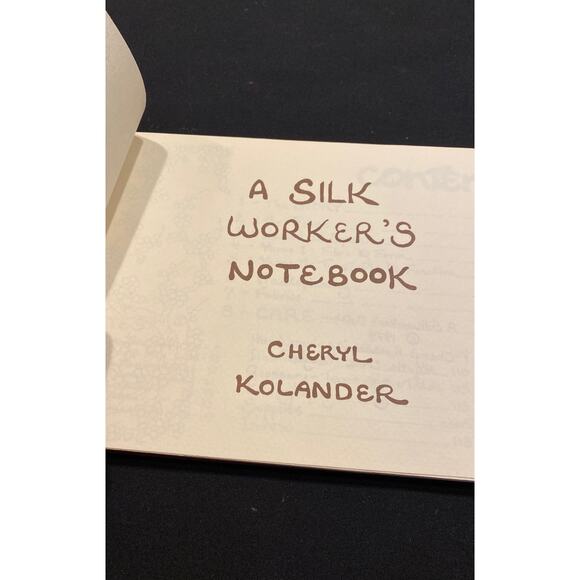 A SILK
WORKER'S
NOTEBOOK
CHERYL
KOLANDER